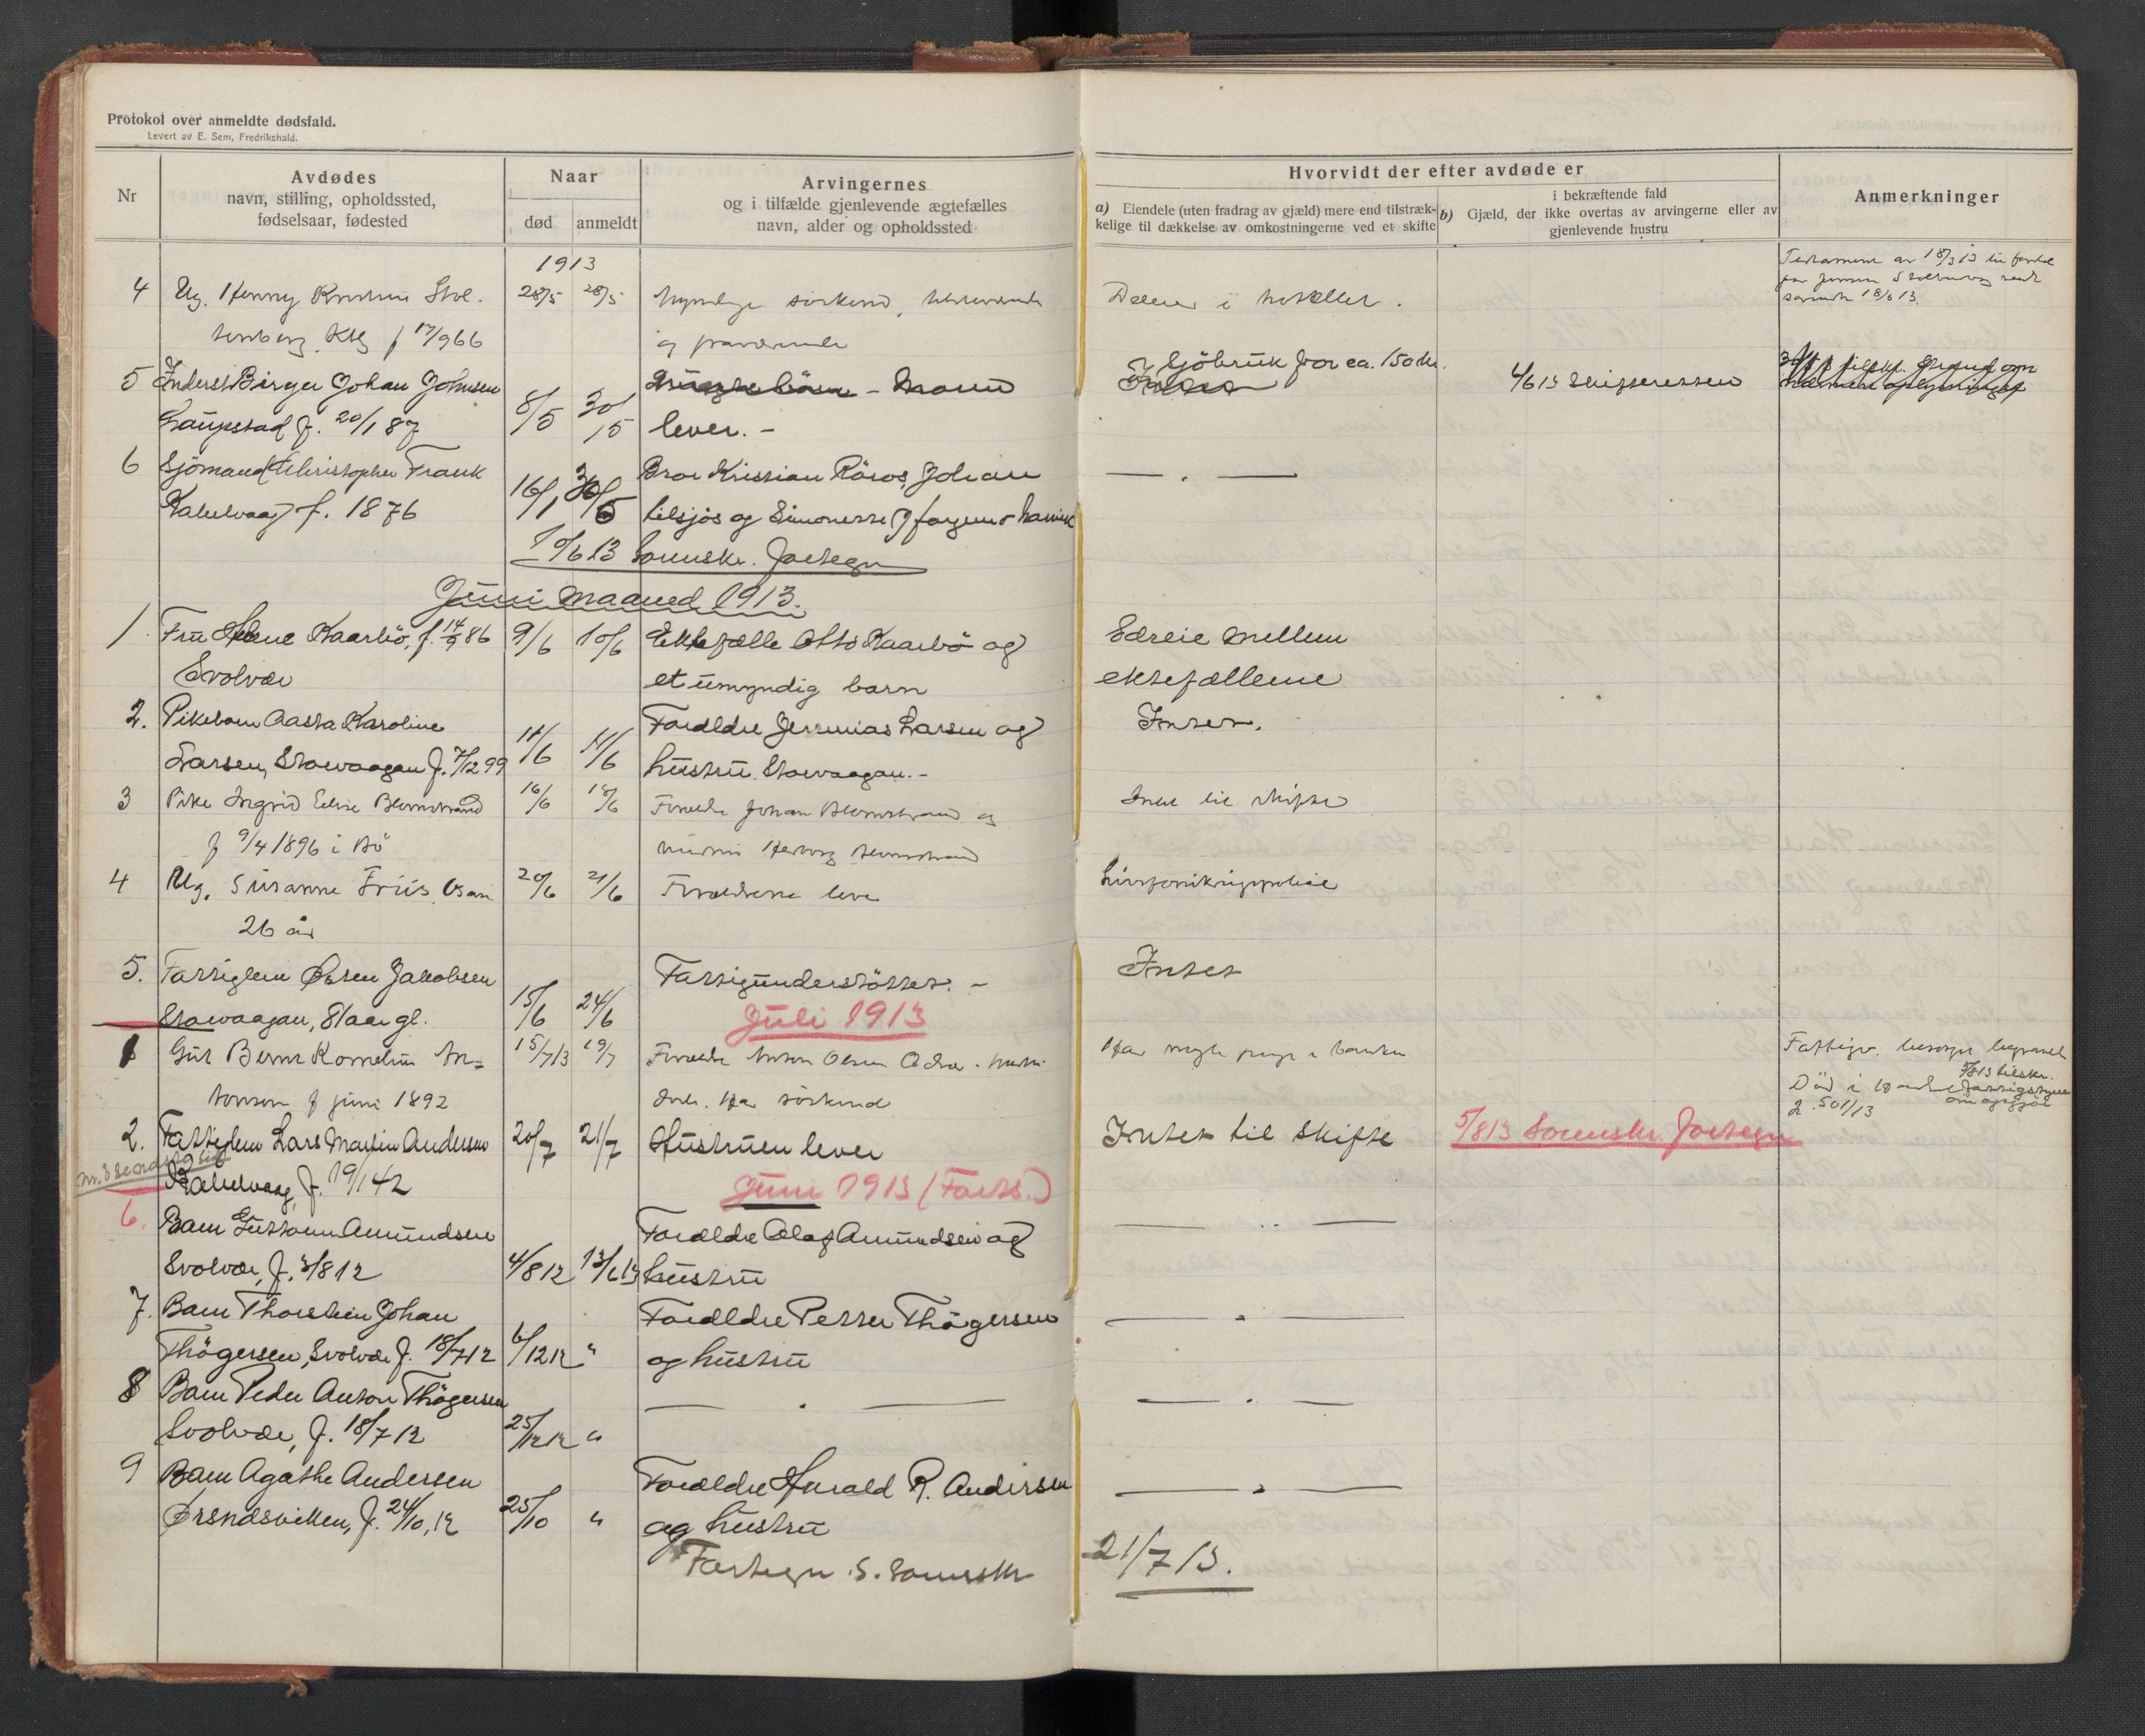 Protokol over anmeldte dødsfald.
Levert av E. Sem, Fredrikshald.
Nr
Avdødes
navn, stilling, opholdssted,
fødselsaar, fødested
Naar
død
anmeldt
Arvingernes
og i tilfælde gjenlevende ægtefælles
navn, alder og opholdssted
Hvorvidt der efter avdøde er
a) Eiendele (uten fradrag av gjæld) mere end tilstræk-
kelige til dækkelse av omkostningerne ved et skifte
i bekræftende fald
b) Gjæld, der ikke overtas av arvingerne eller av
gjenlevende hustru
Anmerkninger
1913
4 Ug. Henny Kristine Stol- 28/5 28/5 Myndige søskend, tilstedeværende
tenberg f 17/9 66 og fraværende
Deler i hotellet.
5 Inderst Birger Johan Johnsen 8/5 30/5 - Moren
Laupstad f. 20/1 87 lever. -
Sjöbruk for ca. 150 kr.
4/6 13 Skifteretten
6 Sjömand Christopher Frank 16/1 30/5 Bror Kristian Röros, Johan
Kabelvaag f. 1876 Tilsjøs og Simonette
— " —
7/6 13 Sorenskr. fortegn
Juni maaned 1913.
1. Fru Helene Kaarbö, f. 14/9 86 9/6 10/6 Ektefælle Otto Kaarbö og
Svolvær et umyndig barn
Særeie mellem
ektefællerne
2. Pikebarn Aasta Karoline Forældre Jeremias Larsen og
Larsen, Storvaagan f. 7/12 99 11/6 11/6 hustru Storvaagan. -
Intet.
3 Pike Ingrid Elvie Blomstrand 16/6 18/6 Forældre Johan Blomstrand og
f 9/4 1896 i Bö hustru Herborg Blomstrand
Intet til skifte
4 Ug. Susanne Friis Osan 20/6 21/6 Forældrene lever
26 år
Livsforsikringspolice
5. Fattiglem Jakobsen Fattigunderstöttet. -
Storvaagan, 81 aar gl. 15/6 24/6
Intet
Juli 1913
1 Gut Bernt Kornelius An- 15/7 13 19/7 Forældre Anton Olsen
tonsen f juni 1892 Har søskend
Har nogle penge i banken
Fattigv. besørger begravels
5/8 13 tilskr.
Død i fattigstyre
om opgjör
J. 501/13
2. Fattiglem Lars Martin Andersen 20/7 21/7 Hustruen lever
Kabelvaag, f. 19/1 42
Intet til skifte
5/8 13 Sorenskr. fortegn
Juni 1913 (Forts.)
6. Barn Guttorm Amundsen Forældre Olaf Amundsen og
Svolvær, f. 3/8 12 4/8 12 13/6 13 hustru
— " —
7. Barn Thorstein Johan Forældre Petter Thögersen
Thögersen, Svolvær f. 18/7 12 6/12 12 " og hustru
— " —
8 Barn Peder Anton Thögersen — " —
Svolvær, f. 18/7 12 25/12 12 "
— " —
9 Barn Agathe Andersen Forældre Harald R. Andersen
Ørsndsvikken, f. 24/10, 12 25/10 " og hustru
— " —
Fortegn. S. Sorenskr
21/7 13.